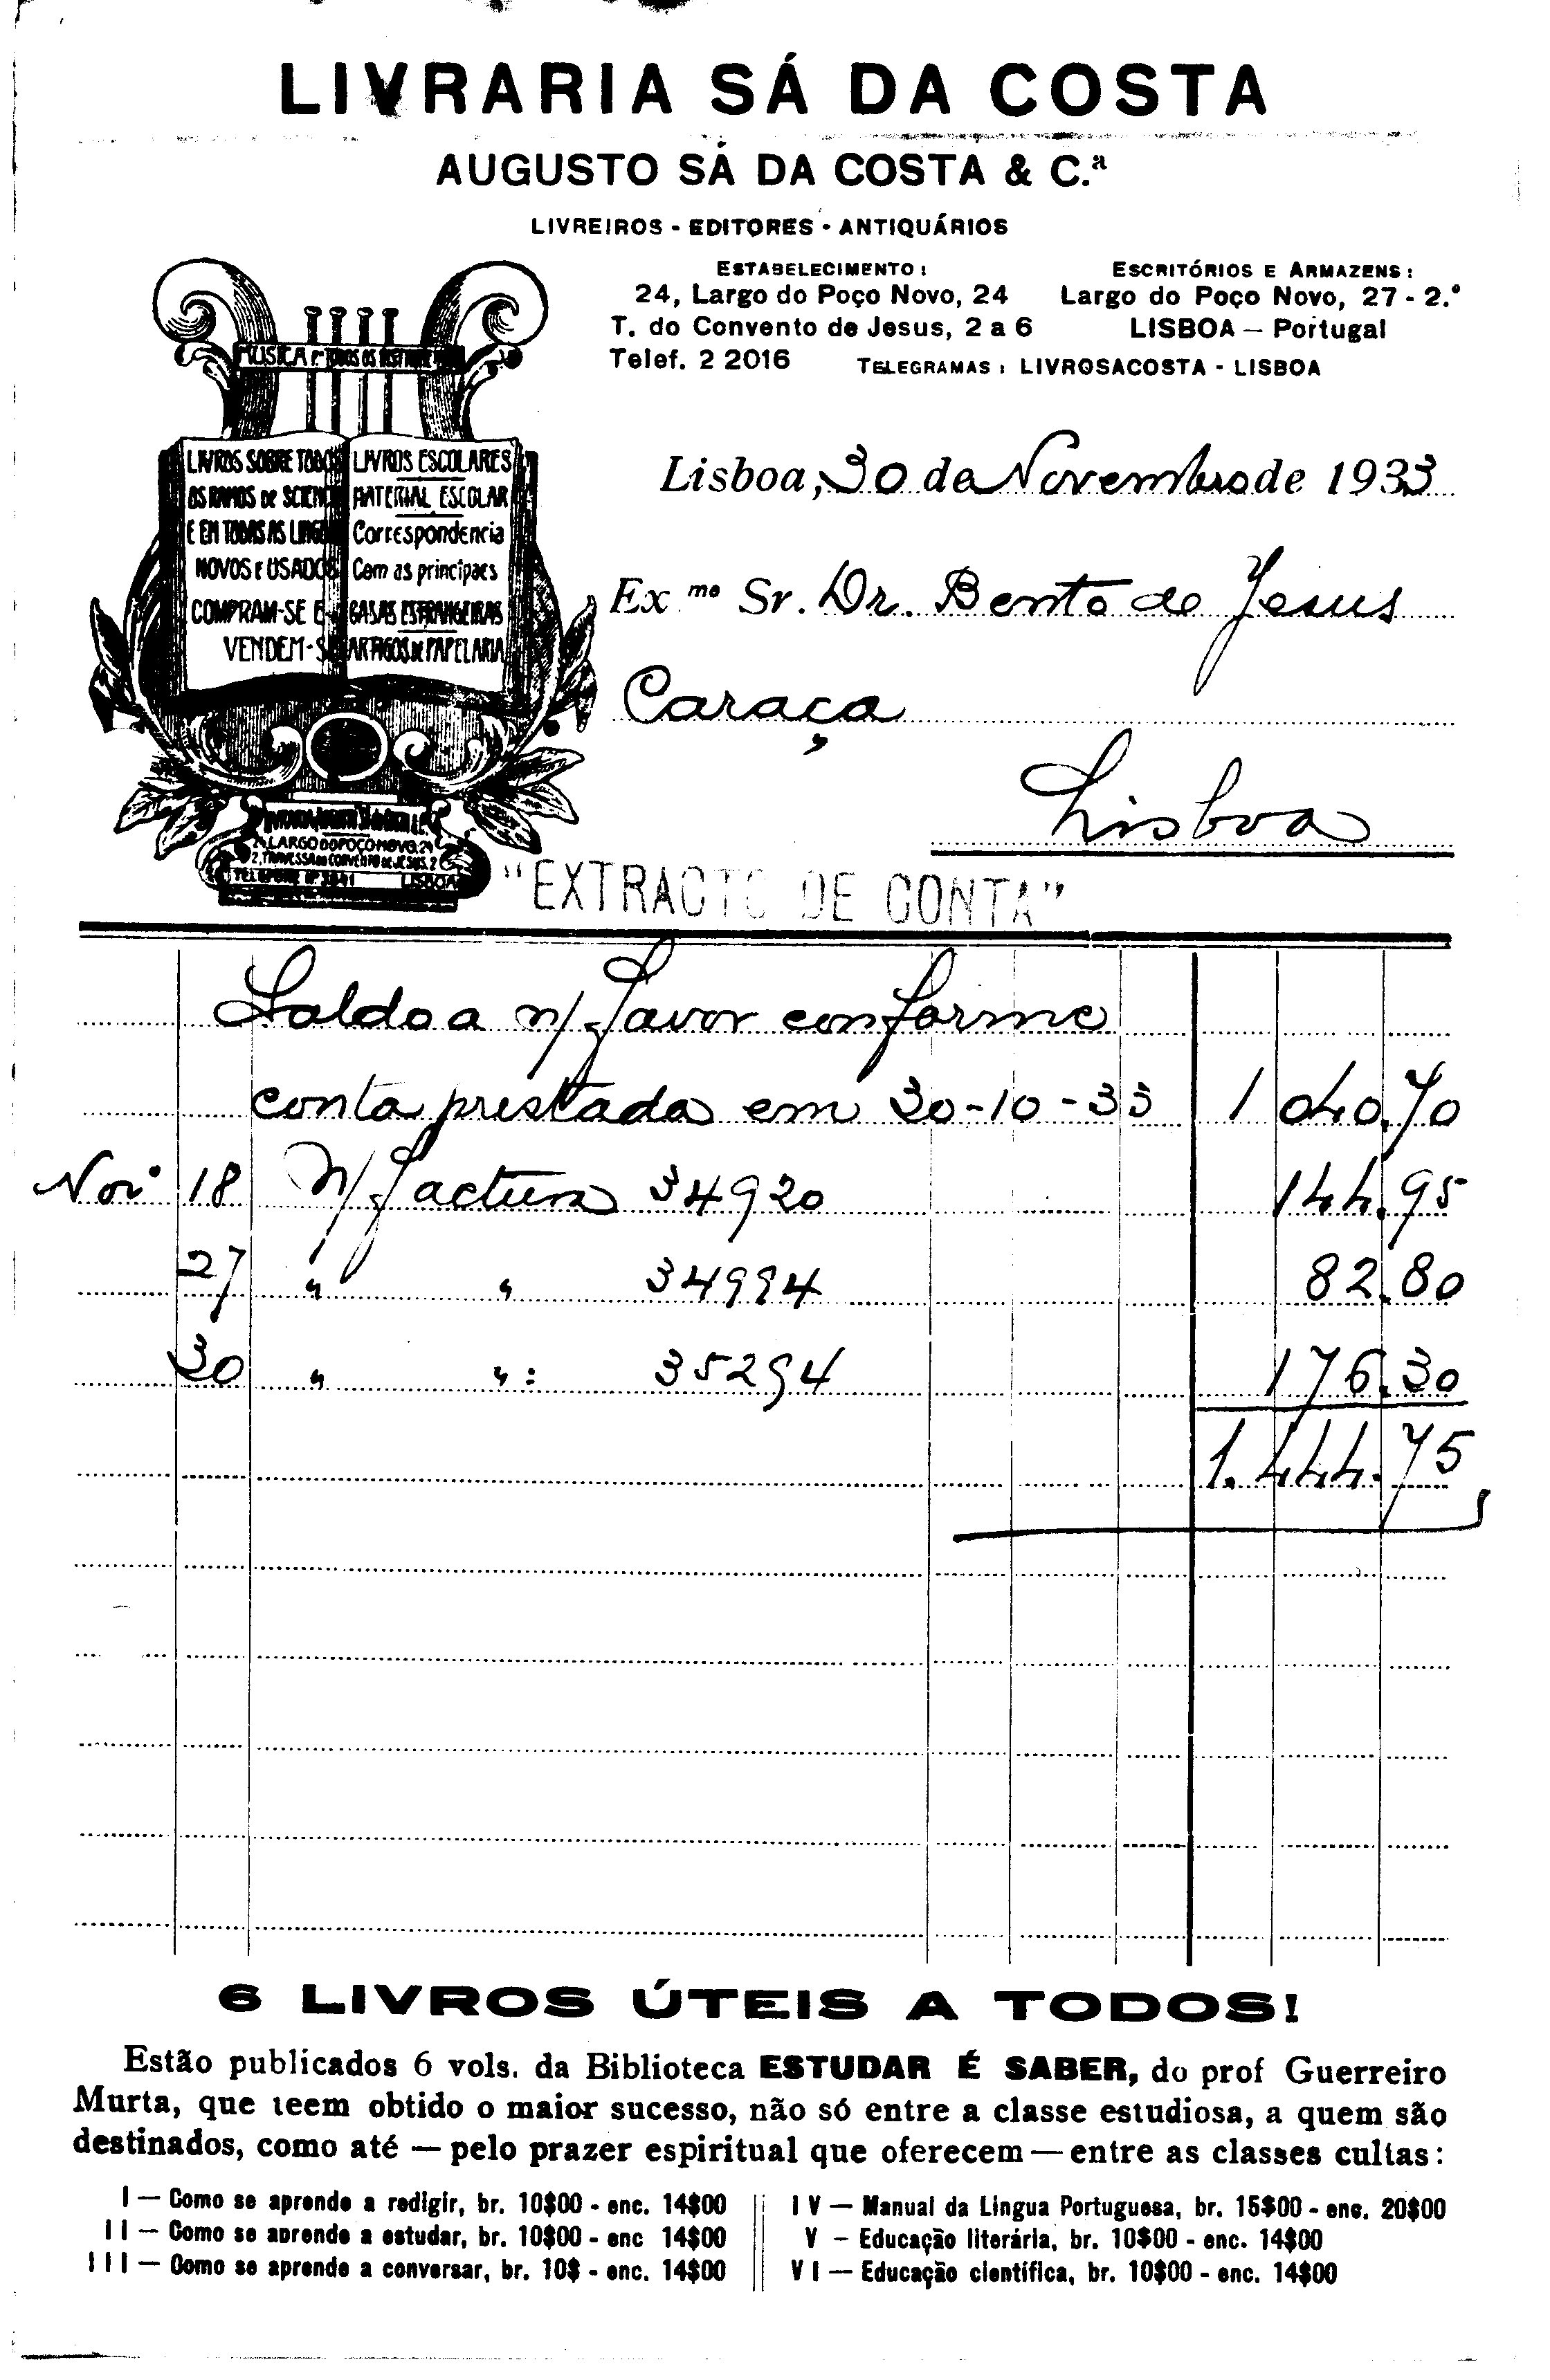 LIVRARIA SÁ DA COSTA
AUGUSTO SÁ DA COSTA & C.ª
LIVREIROS - EDITORES - ANTIQUÁRIOS
ESTABELECIMENTO:
24, Largo do Poço Novo, 24
T. do Convento de Jesus, 2 a 6
Telef. 2 2016
ESCRITÓRIOS E ARMAZENS:
Largo do Poço Novo, 27 - 2.º
LISBOA — Portugal
TELEGRAMAS: LIVROSACOSTA - LISBOA
MUSICA E TODOS OS
LIVROS SOBRE TODOS
OS RAMOS DE SCIENC
E EM TODAS AS LINGU
NOVOS E USADOS
COMPRAM-SE E
VENDEM-SE
LIVROS ESCOLARES
MATERIAL ESCOLAR
Correspondencia
Com as principaes
CASAS ESTRANGEIRAS
ARTIGOS DE PAPELARIA
LARGO DO POÇO NOVO, 24
2, TRAVESSA DO CONVENTO DE JESUS, 2
LISBOA
Lisboa, 30 de Novembro de 1933
Ex.mo Sr. Dr. Bento de Jesus
Caraça
Lisboa
"EXTRACTO DE CONTA"
Saldo a n/ favor conforme
conta prestada em 30-10-33 1 040.70
Novº 18 N/ factura 34920 144.95
27 " " 34994 82.80
30 " " : 35294 176.30
1.444.75
6 LIVROS ÚTEIS A TODOS!
Estão publicados 6 vols. da Biblioteca ESTUDAR É SABER, do prof Guerreiro
Murta, que teem obtido o maior sucesso, não só entre a classe estudiosa, a quem são
destinados, como até — pelo prazer espiritual que oferecem — entre as classes cultas:
I — Como se aprende a redigir, br. 10$00 - enc. 14$00
II — Como se aprende a estudar, br. 10$00 - enc 14$00
III — Como se aprende a conversar, br. 10$ - enc. 14$00
IV — Manual da Lingua Portuguesa, br. 15$00 - enc. 20$00
V — Educação literária, br. 10$00 - enc. 14$00
VI — Educação científica, br. 10$00 - enc. 14$00